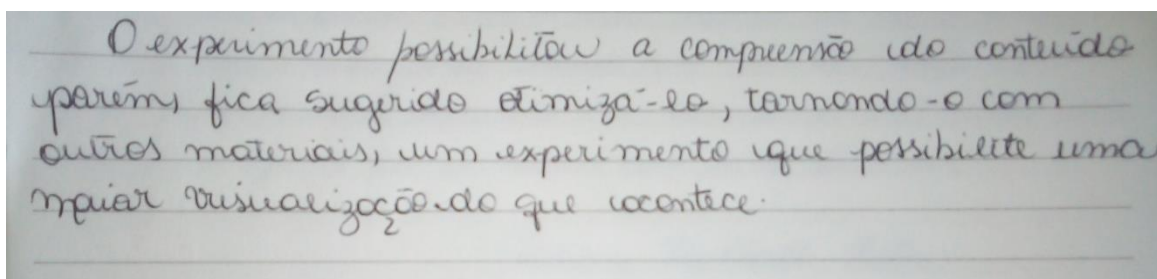 O experimento possibilitou a compreensão do conteúdo
porém, fica sugerido otimizá-lo, tornando-o com
outros materiais, um experimento que possibilite uma
maior visualização do que acontece.